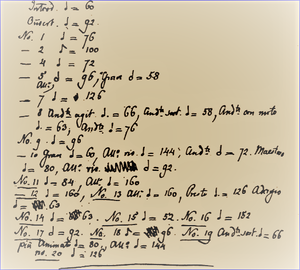 Introd. d = 60
d = 92.
No. 1 d = 76
— 2 = 100
— 4 d = 72
— 5 d = 96, Gran d = 58
— 7 d = 126
— 8 And.te agit. d. = 66, And.te sost. d = 58, And.te con moto
d. = 63, And.te d = 76
No. 9. d = 96
— 10 Gran d = 60, All.o viv. d = 144, And.te d = 72. Maestoso
d = 80, All.o viv. d = 92.
No. 11 d = 84, All.o d = 160
— 12 d = 160, No. 13 All.o d = 160, Presto d = 126 Adagio
d = 63
No. 14 d = 63. No. 15 d = 52. No. 16 d = 152
No. 17 d = 92. No. 18 = 96. No. 19 And.te sost. d = 66
più animato d = 80, All.o d = 144
no. 20 d = 126